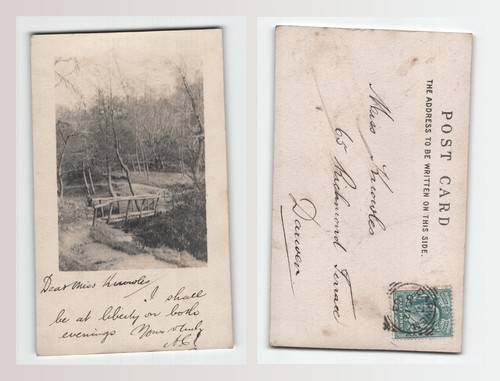 Dear Miss Knowles
I shall
be at liberty on both
evenings Yours truly
POST CARD
THE ADDRESS TO BE WRITTEN ON THIS SIDE.
Miss Knowles
65 Richmond Terrace
Darwen